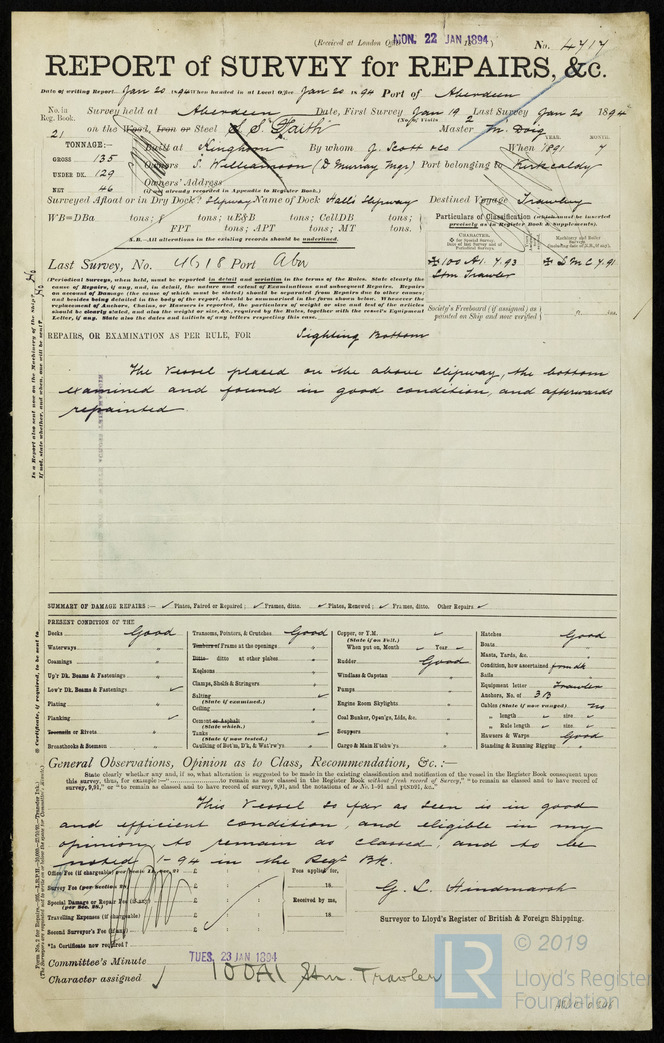 (Received at London Office MON. 22 JAN 1894)
No. 4717
REPORT of SURVEY for REPAIRS, &c.
Date of writing Report Jan 20 1894 When handed in at Local Office Jan 20 1894 Port of Aberdeen
No. in Reg. Book. Survey held at Aberdeen Date, First Survey Jan 19 Last Survey Jan 20 1894
(No. of Visits 2
21 on the Wood, Iron or Steel S.S. "Faith" Master M. Doig
TONNAGE:— Built at Kinghorn By whom J. Scott & Co When 1891 7
YEAR. MONTH.
GROSS 135 Owners S. Williamson (D Murray Mgr) Port belonging to Kirkcaldy
UNDER DK. 129
NET 46 Owners' Address
(if not already recorded in Appendix to Register Book.)
Surveyed Afloat or in Dry Dock? Slipway Name of Dock Halls Slipway Destined Voyage Trawling
WB=DBa tons; f tons; uE&B tons; CellDB tons;
FPT tons; APT tons; MT tons.
N.B.—All alterations in the existing records should be underlined.
Particulars of Classification (which must be inserted
precisely as in Register Book & Supplements).
CHARACTER.
Last Survey, No. 4618 Port Abn
✠100A1. 7.93 ✠LMC 7.91
Stm Trawler
(Periodical Surveys, when held, must be reported in detail and seriatim in the terms of the Rules. State clearly the
cause of Repairs, if any, and, in detail, the nature and extent of Examinations and subsequent Repairs. Repairs
on account of Damage (the cause of which must be stated) should be separated from Repairs due to other causes;
and besides being detailed in the body of the report, should be summarised in the form shown below. Whenever the
replacement of Anchors, Chains, or Hawsers is reported, the particulars of weight or size and test of the articles
should be clearly stated, and also the weight or size, &c., required by the Rules, together with the vessel's Equipment
Letter, if any. State also the dates and initials of any letters respecting this case.
Society's Freeboard (if assigned) as
painted on Ship and now verified
REPAIRS, OR EXAMINATION AS PER RULE, FOR Sighting Bottom
The Vessel placed on the above slipway, the bottom
examined and found in good condition, and afterwards
repainted.
SUMMARY OF DAMAGE REPAIRS:— Plates, Faired or Repaired; Frames, ditto. Plates, Renewed; Frames, ditto. Other Repairs
PRESENT CONDITION OF THE
Decks Good
Waterways "
Coamings "
Up'r Dk. Beams & Fastenings "
Low'r Dk. Beams & Fastenings
Plating "
Planking
Treenails or Rivets "
Breasthooks & Stemson "
Transoms, Pointers, & Crutches Good
Timbers or Frames at the openings "
Ditto ditto at other places "
Keelsons "
Clamps, Shelfs & Stringers "
Salting
(State if examined.)
Ceiling "
Cement or Asphalt "
(State which.)
Tanks
(State if now tested.)
Caulking of Bot'm, Dk, & Wat'rw'ys "
Copper, or Y.M.
(State if on Felt.)
When put on, Month Year
Rudder Good
Windlass & Capstan "
Pumps "
Engine Room Skylights "
Coal Bunker, Open'gs, Lids, &c. "
Scuppers "
Cargo & Main H'tchw'ys "
Hatches Good
Boats "
Masts, Yards, &c. "
Condition, how ascertained from dk
Sails "
Equipment letter Trawler
Anchors, No. of 3B
Cables (State if now ranged) no
" length size
" Rule length size
Hawsers & Warps Good
Standing & Running Rigging "
General Observations, Opinion as to Class, Recommendation, &c. :—
State clearly whether any and, if so, what alteration is suggested to be made in the existing classification and notification of the vessel in the Register Book consequent upon
This Vessel so far as seen is in good
and efficient condition, and eligible in my
opinion to remain as classed and to be
noted 1-94 in the Regr Bk.
Survey Fee (per Section 28) £ : :
Special Damage or Repair Fee (if any) £ : :
(per Sec. 28.)
Travelling Expenses (if chargeable) £ : :
Second Surveyor's Fee (if any) £ : :
Fees applied for,
18
Received by me,
18
G. L. Hindmarsh
Surveyor to Lloyd's Register of British & Foreign Shipping.
*Is Certificate now required?
Committee's Minute TUES. 23 JAN 1894
Character assigned 100A1 Stm. Trawler
LR © 2019
Lloyd's Register
Foundation